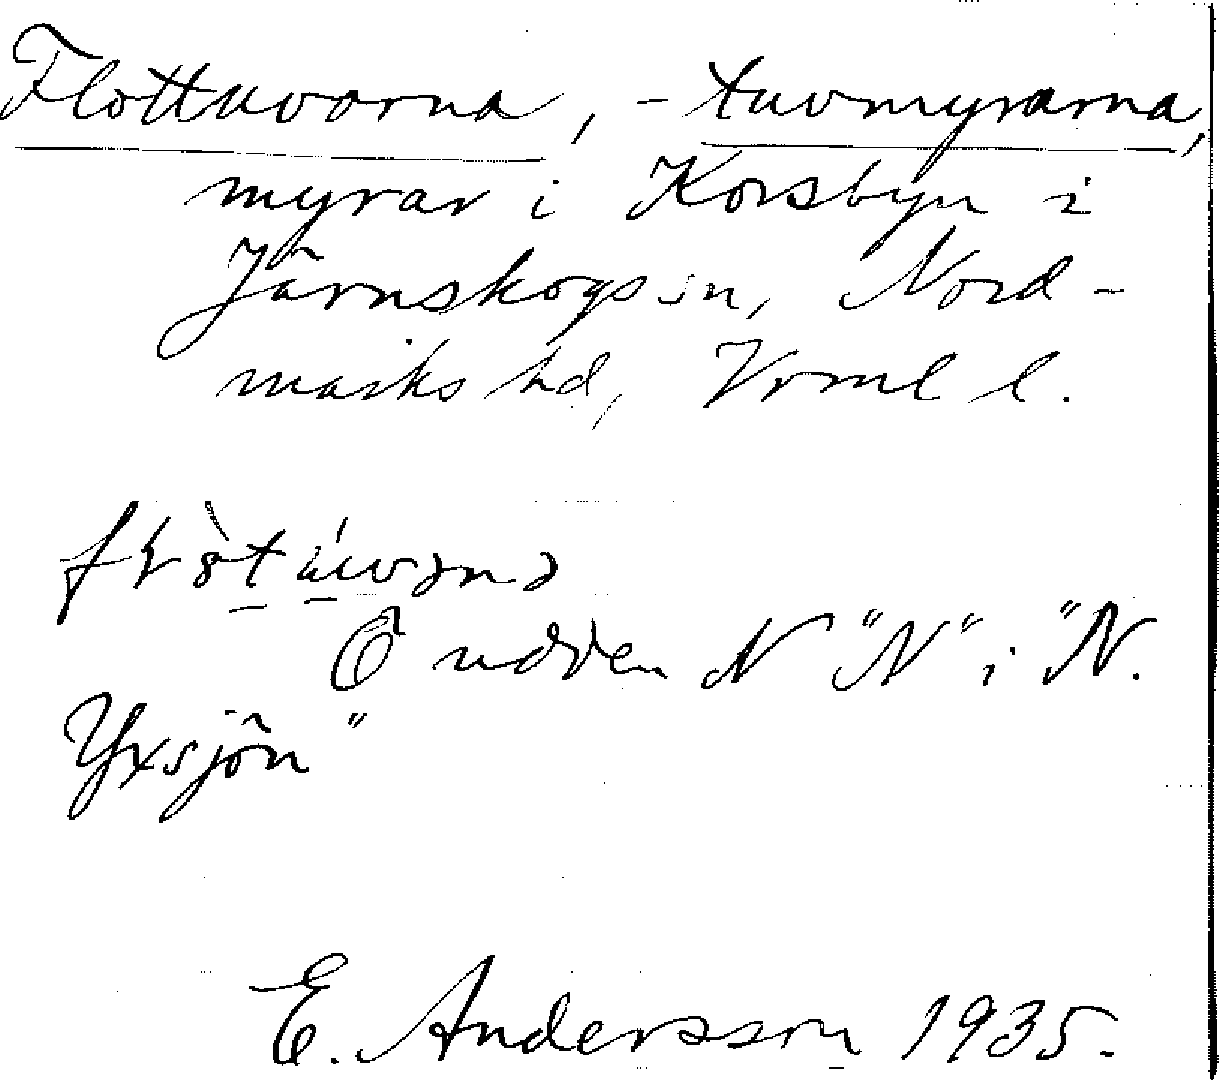 Flottuvorna, -tuvmyrarna,
myrar i Korsbyn i
Järnskogs sn, Nord-
marks hd, Vrml l.
Ö udden N "N" i "N.
Yxsjön"
E. Andersson 1935.